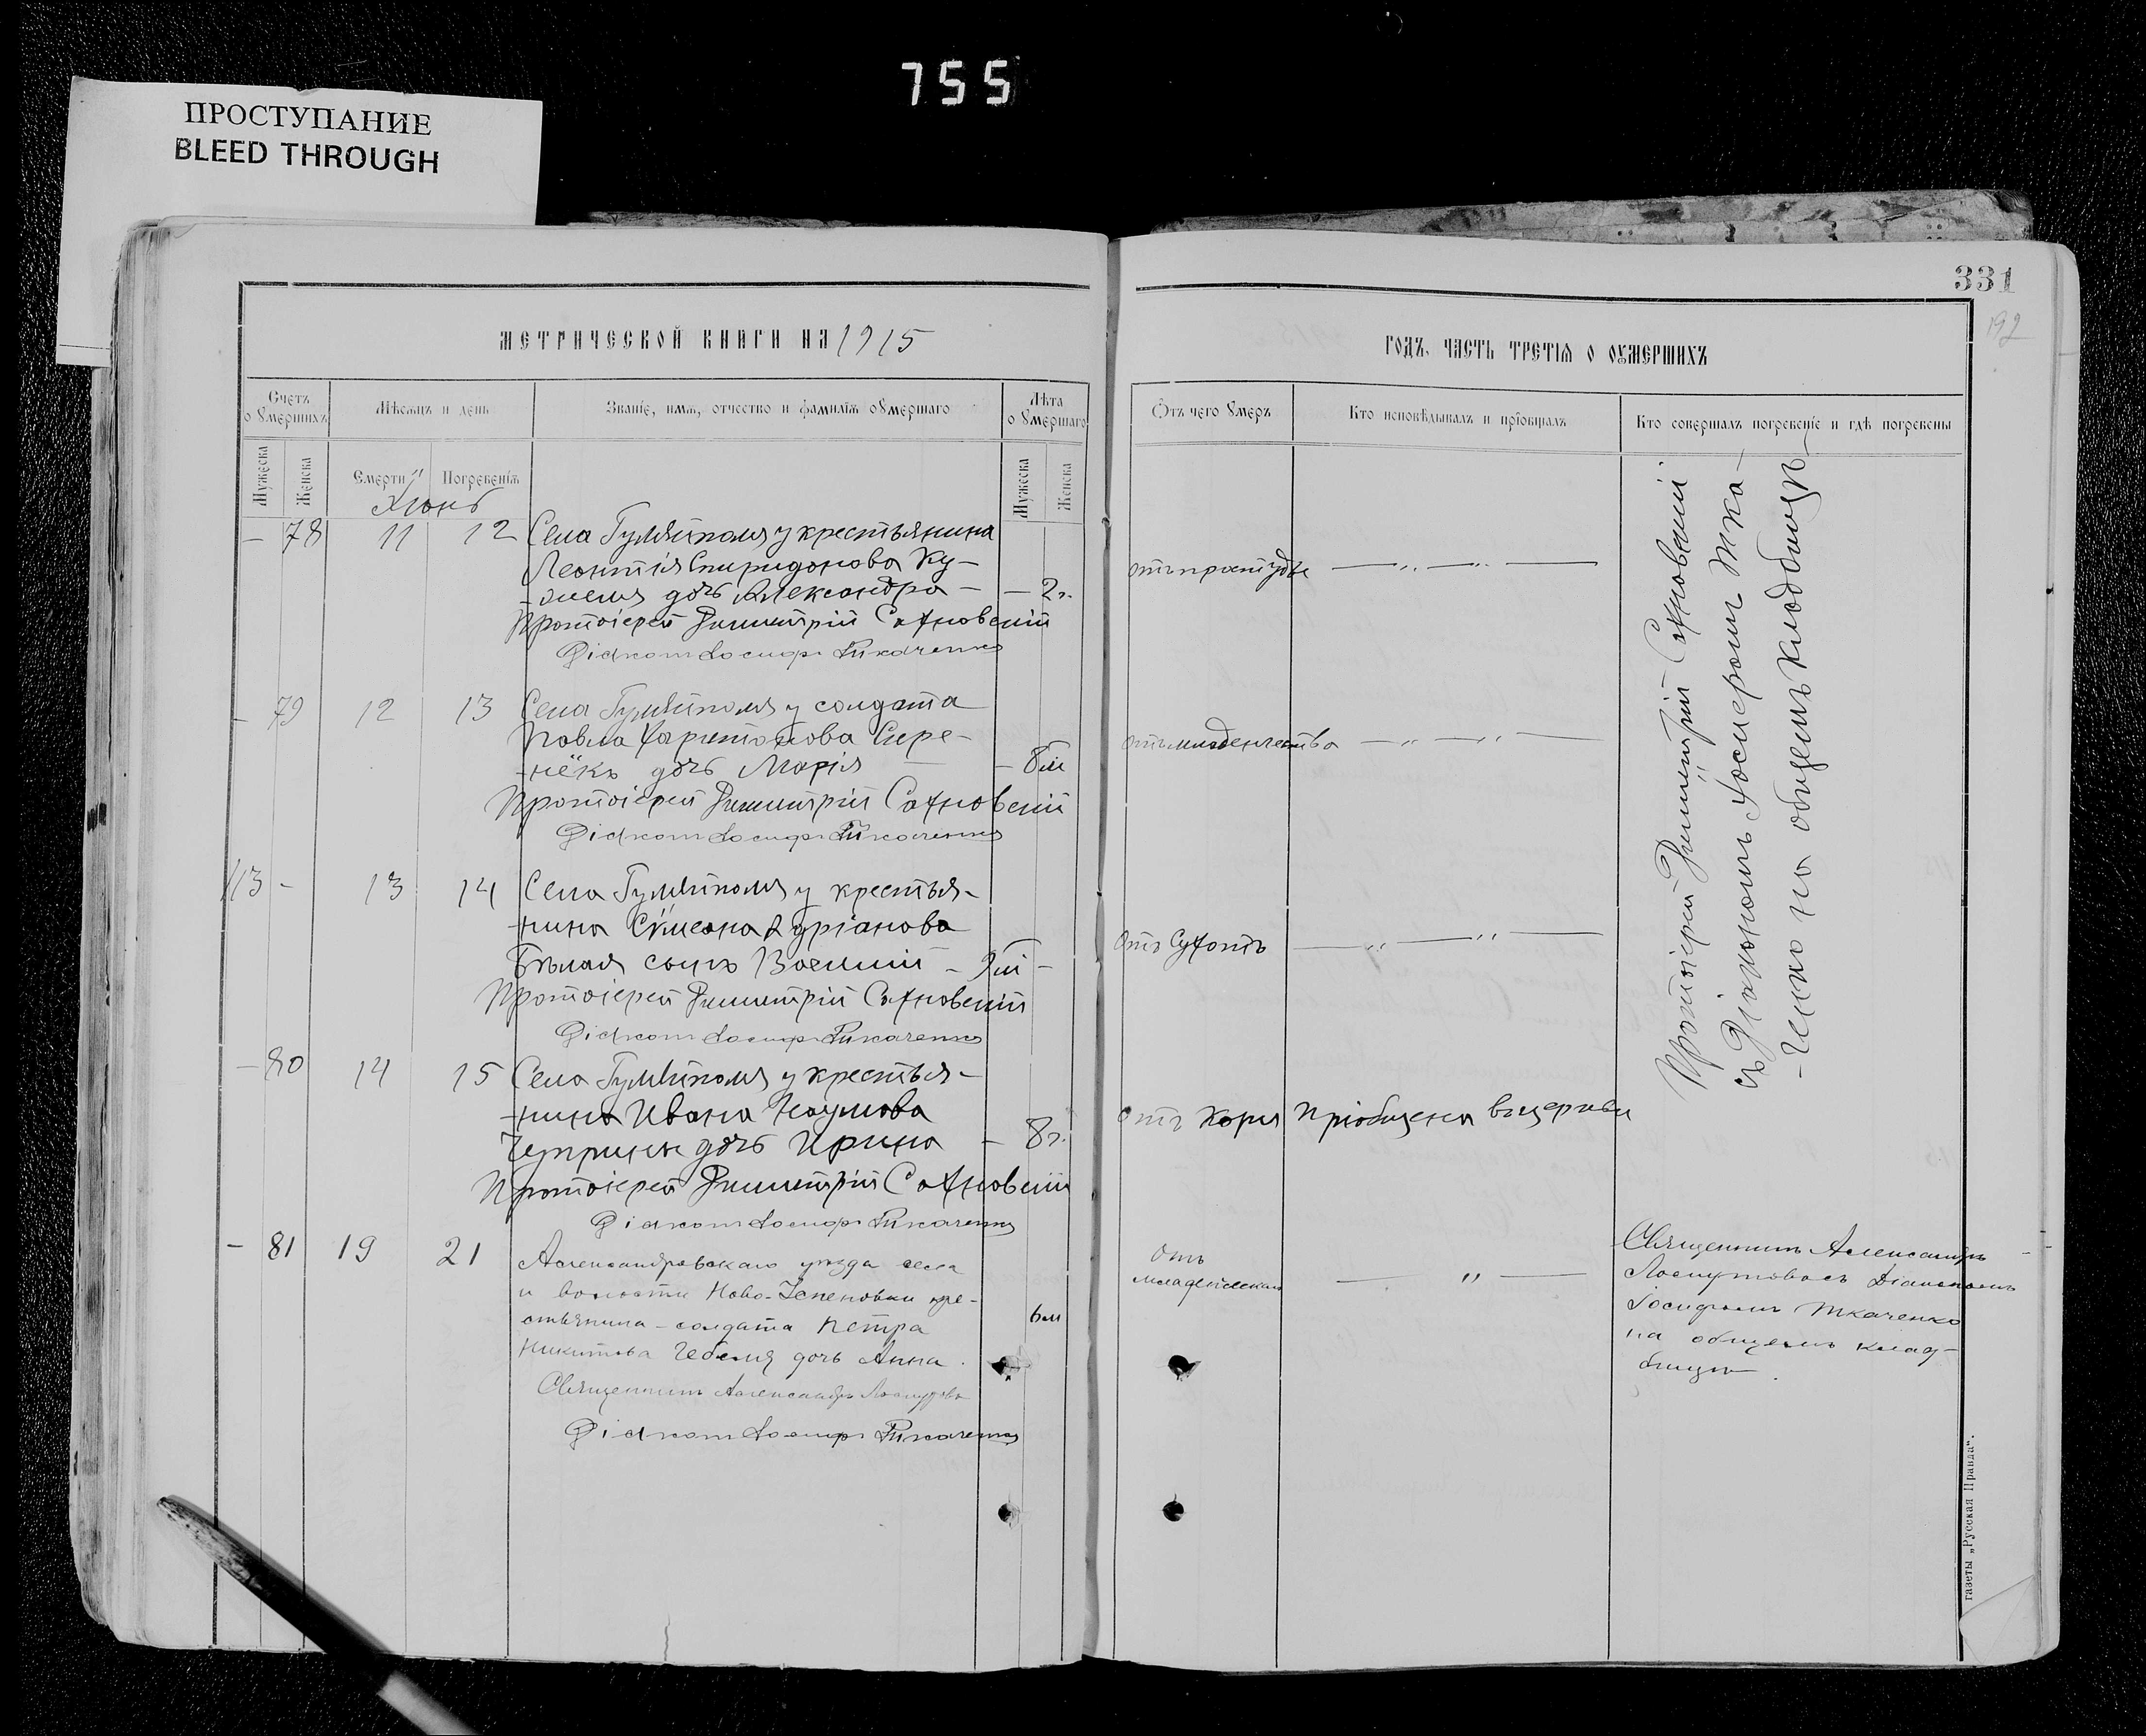 755
ПРОСТУПАНИЕ
BLEED THROUGH
331
192
МЕТРИЧЕСКОЙ КНИГИ НА 1915
ГОДЪ, ЧАСТЬ ТРЕТІѦ О ОУМЕРШИХЪ
Счетъ оумершихъ
Мѣсяцъ и день
Званіе, имѧ, отчество и фамиліѧ оумершаго
Лѣта оумершаго
Мужеска
Женска
Смерти
Погребеніѧ
Мужеска
Женска
Отъ чего умеръ
Кто исповѣдывалъ и пріобщалъ
Кто совершалъ погребеніе и гдѣ погребены
Іюнь
- 78 11 12 Села Гуляйполя у крестьянина
Леонтія Спиридонова Ку-
дочь Александра - - 2 г.
отъ простуды
Протоіерей Димитрій Сахновскій
Діаконъ Іосифъ Ткаченко
- 79 12 13 Села Гуляйполя у солдата
Павла Харитонова
дочь Марія - 8 м
отъ младенчества
Протоіерей Димитрій Сахновскій
Діаконъ Іосифъ Ткаченко
113 - 13 14 Села Гуляйполя у крестья-
-нина Сѵмеона Гуріанова
Бѣлая сынъ Василій -
отъ сухотъ
Протоіерей Димитрій Сахновскій
Діаконъ Іосифъ Ткаченко
- 80 14 15 Села Гуляйполя у крестья-
-нина Ивана Наумова
дочь Ирина - 8 г.
отъ Коря Пріобщена въ церкви
Протоіерей Димитрій Сахновскій
Діаконъ Іосифъ Ткаченко
Протоіерей Димитрій Сахновскій
съ Діакономъ Іосифомъ Тка-
-ченко на общемъ кладбищѣ
- 81 19 21 Александровскаго уѣзда села
и волости Ново- кре-
стьянина-солдата Петра
Никитова дочь Анна.
6 м
Отъ младенческой
Священникъ Александръ
Діакономъ
Іосифомъ Ткаченко
на общемъ клад-
бищѣ.
Священникъ Александръ
Діаконъ Іосифъ Ткаченко
газеты „Русская Правда".